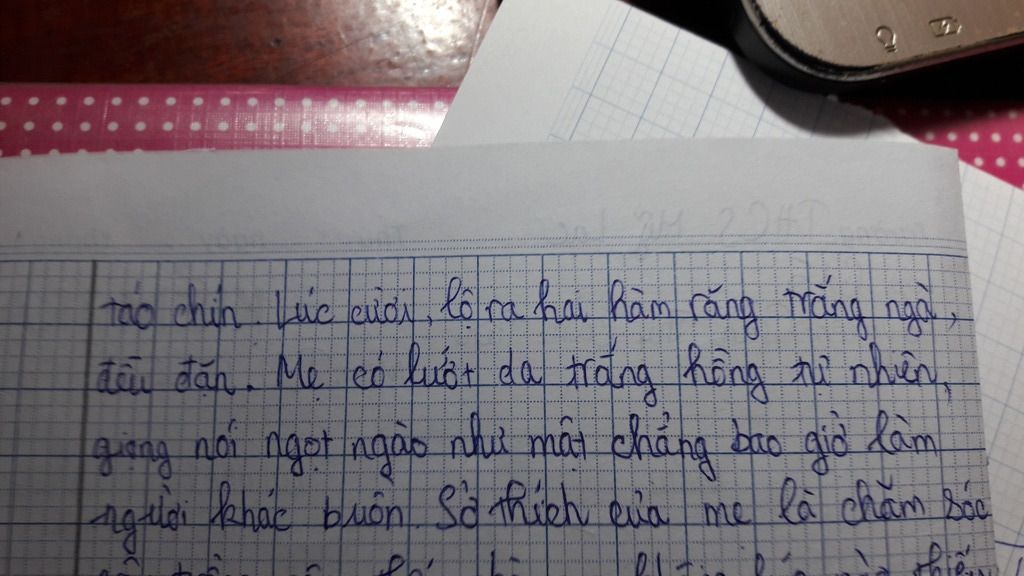 táo chín. Lúc cười, lộ ra hai hàm răng trắng ngà,
đều đặn. Mẹ có lướt da trắng hồng tự nhiên,
giọng nói ngọt ngào như mật chẳng bao giờ làm
người khác buồn. Sở thích của mẹ là chăm sóc